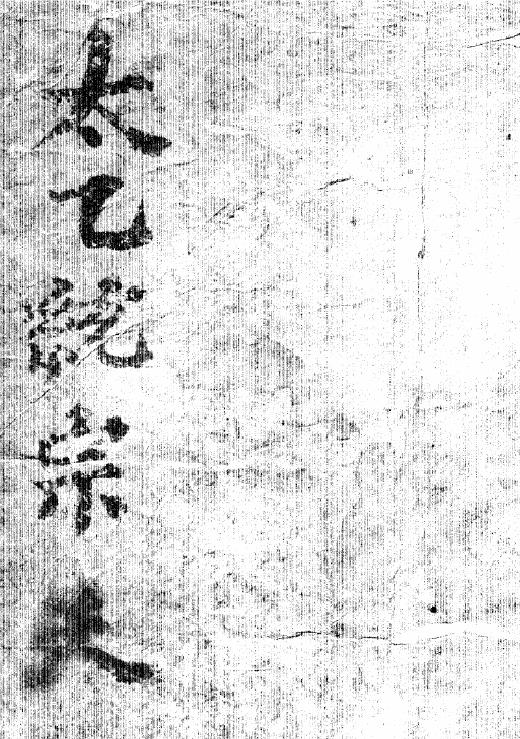 太乙統宗大